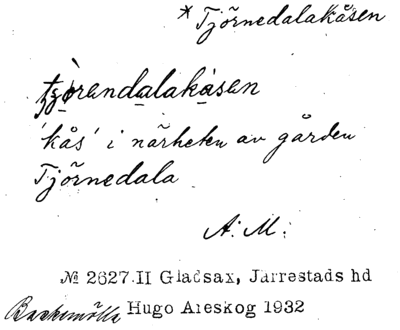 * Tjörnedalakåsen
tjörendalakåsen
'kås' i närheten av gården
Tjörnedala
A. M.
№ 2627.II Gladsax, Järrestads hd
Baskemölla Hugo Areskog 1932